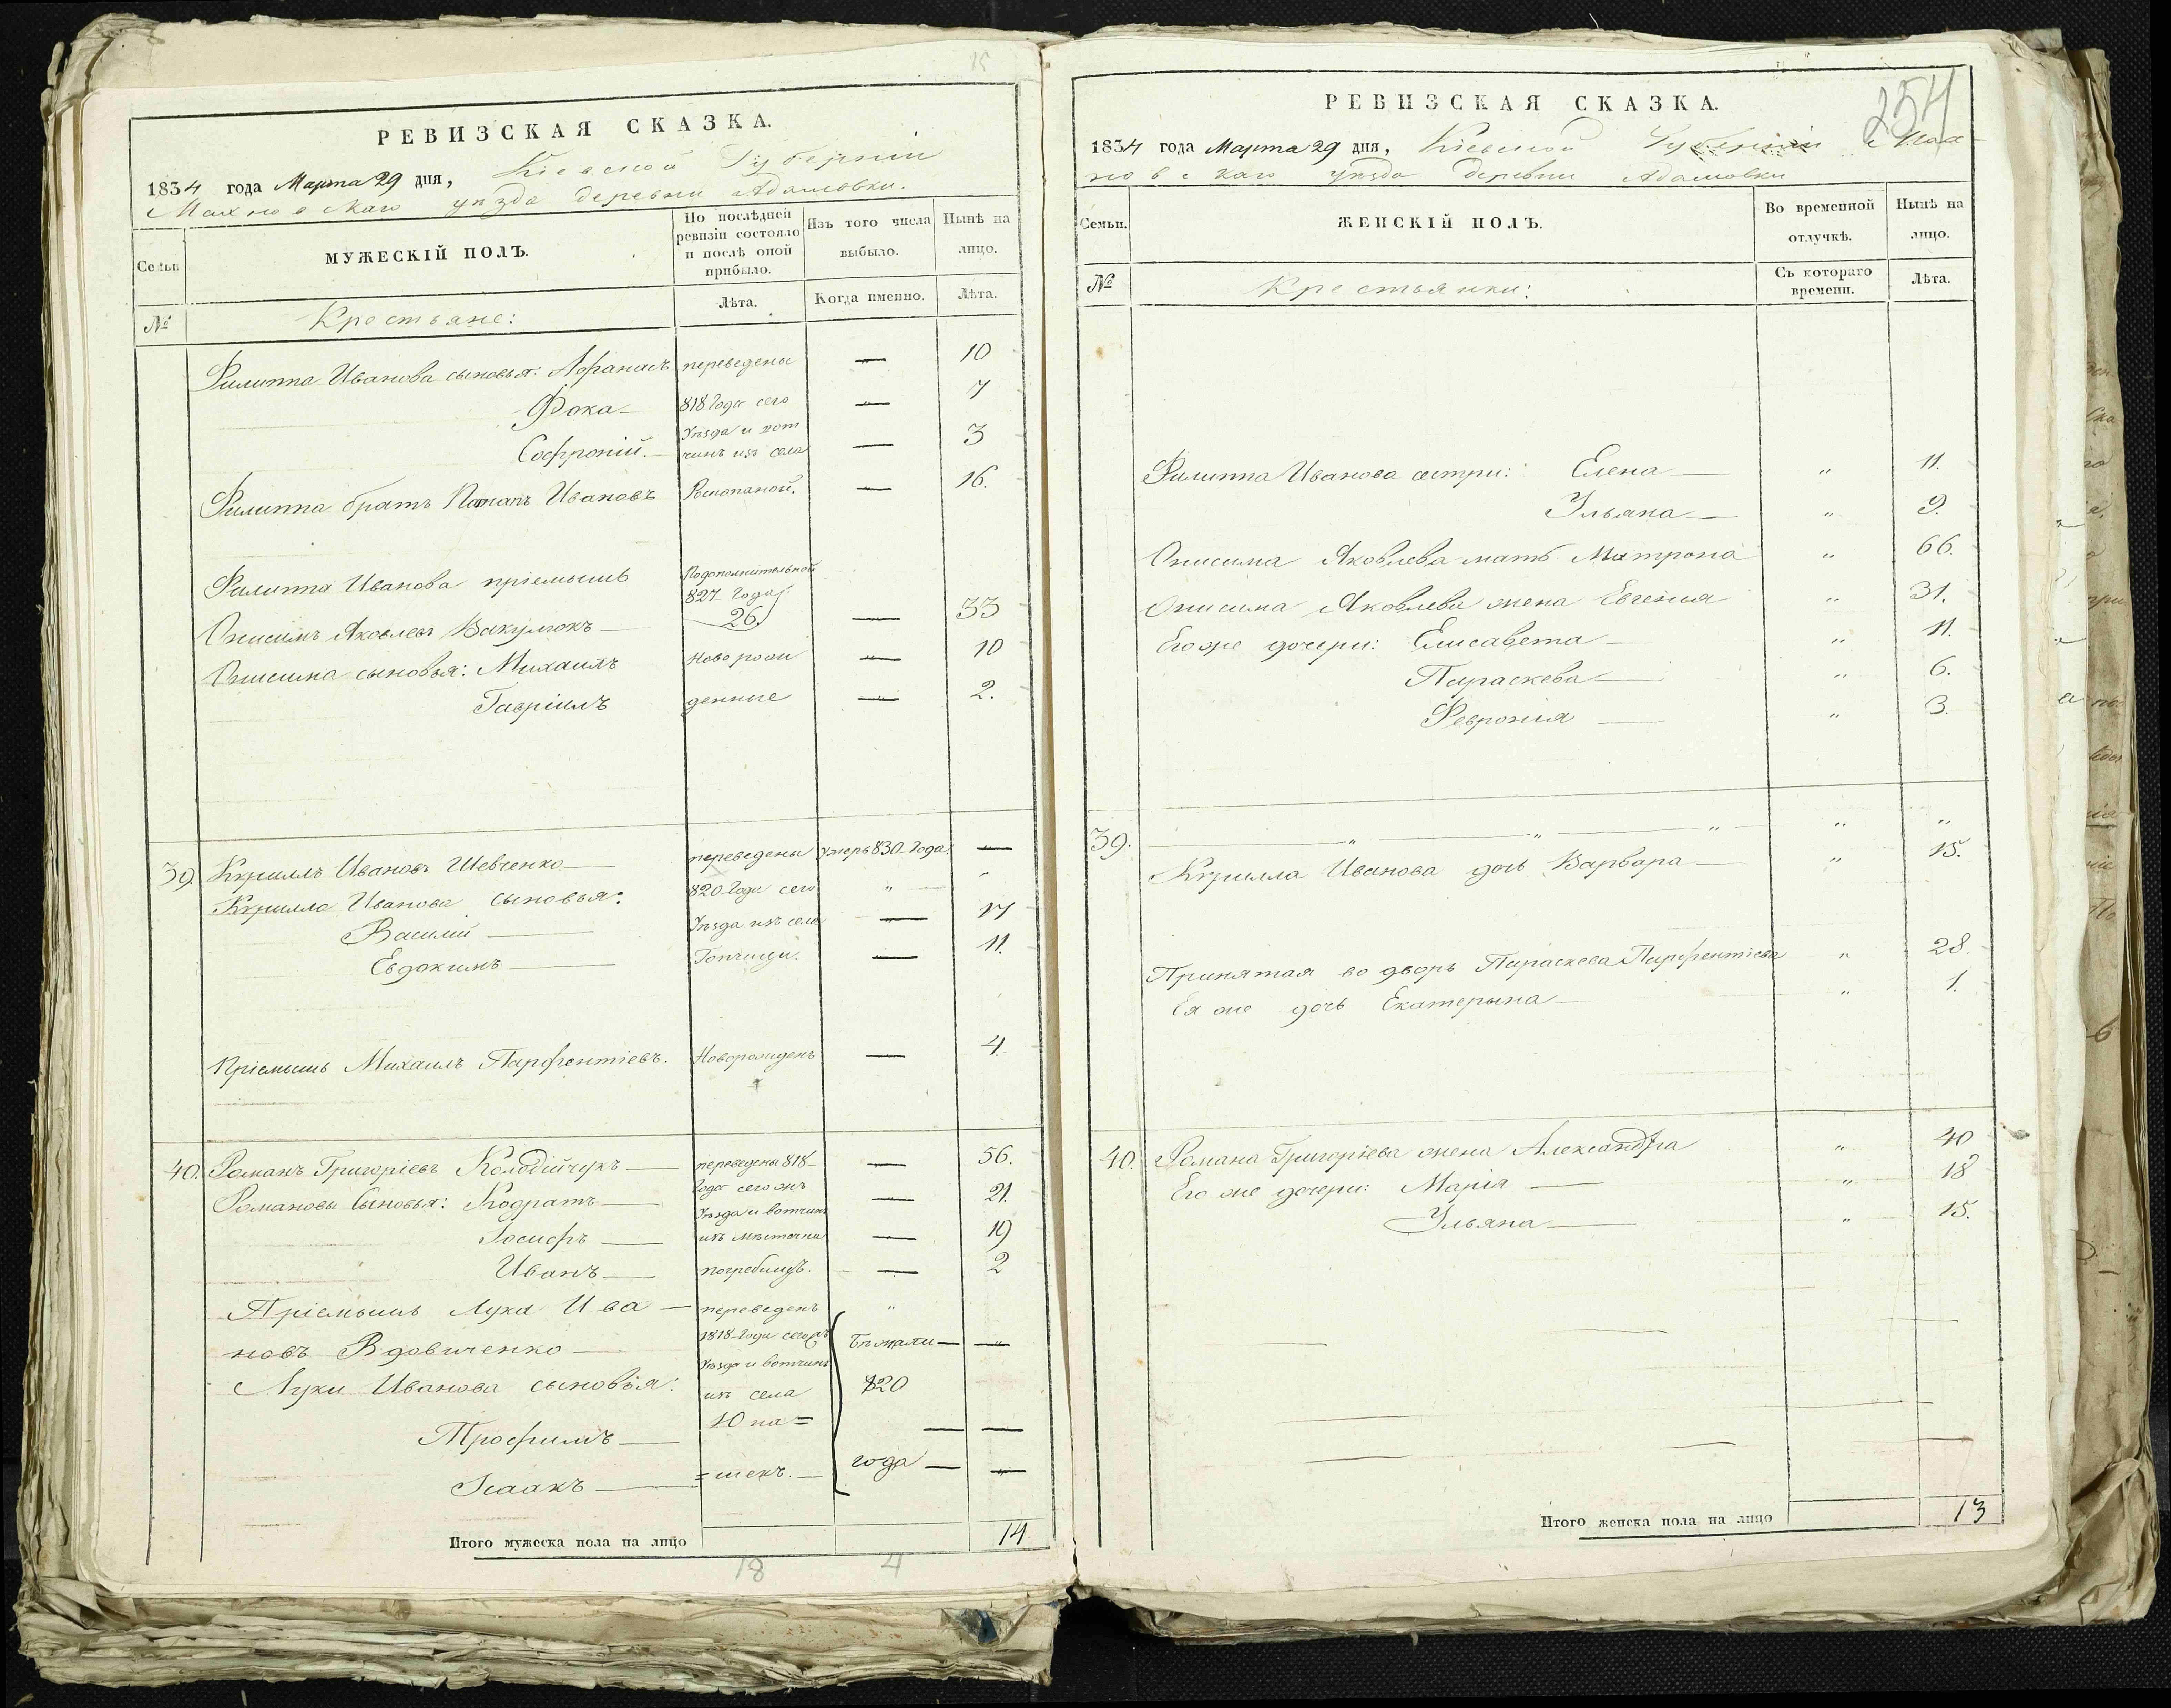 15
РЕВИЗСКАЯ СКАЗКА.
1834 года Марта 29 дня, Кіевской Губерніи
Махновскаго уѣзда деревни Адамовки.
Семьи
МУЖЕСКІЙ ПОЛЪ.
По послѣдней ревизіи состояло и послѣ оной прибыло.
Изъ того числа выбыло.
Нынѣ на лицо.
№
Крестьяне:
Лѣта.
Когда именно.
Лѣта.
Филиппа Иванова сыновья: Афанасъ переведены — 10
Фока — 818 Года сего — 7
Софроній. — Уѣзда и вот — 3
чинъ изъ села
Филиппа братъ Потапъ Ивановъ — 16.
Филиппа Иванова пріемышъ Подополнительной
827 Года
26.
Онисимъ Яковлевъ Вакулюкъ — — 33
Онисима сыновья: Михаилъ Новорож — 10
Гавріилъ денные — 2.
39. Кирилъ Ивановъ Шевченко — переведены умеръ 830 Года. —
Кирилла Иванова сыновья: 820 Года сего „ „
Василій — Уѣзда изъ села — 17
Евдокимъ — — 11.
Пріемышъ Михаилъ Парфентіевъ. Новорожденъ — 4.
40. Романъ Григоріевъ Колодійчукъ — переведены 818 — — 56.
Романовы Сыновья: Кодратъ — Года сего жъ — 21.
Уѣзда и вотчинъ
Іосифъ — изъ мѣстечка — 19
Иванъ — погребищъ. — 2
Пріемышъ Лука Ива — переведенъ „
новъ Вдовиченко — 1818 Года сего жъ Бѣжали — — „
Уѣзда и вотчинъ
Луки Иванова сыновья: изъ села 820
Трофимъ — — —
Ісаакъ — = шекъ. — года — —
Итого мужеска пола на лицо 14
18 4
254
РЕВИЗСКАЯ СКАЗКА.
1834 года Марта 29 дня, Кіевской Губерніи Мах-
новскаго уѣзда деревни Адамовки
Семьи.
ЖЕНСКІЙ ПОЛЪ.
Во временной отлучкѣ.
Нынѣ на лицо.
№
Крестьянки:
Съ котораго времени.
Лѣта.
Филиппа Иванова сестри: Елена — „ 11.
Ульяна — „ 9.
Онисима Яковлева мать Матрона „ 66.
Онисима Яковлева жена Евгенія „ 31.
Его же дочери: Елисавета — „ 11.
Параскева — „ 6.
Февронія — „ 3.
39. — „ — „ — „ — „ „
Кирилла Иванова дочь Варвара — „ 15.
Принятая во дворъ Параскева Парфентіева „ 28.
Ея же дочь Екатерына — „ 1.
40. Романа Григоріева жена Александра „ 40
Его же дочери: Марія — „ 18
Ульяна — „ 15.
Итого женска пола на лицо 13